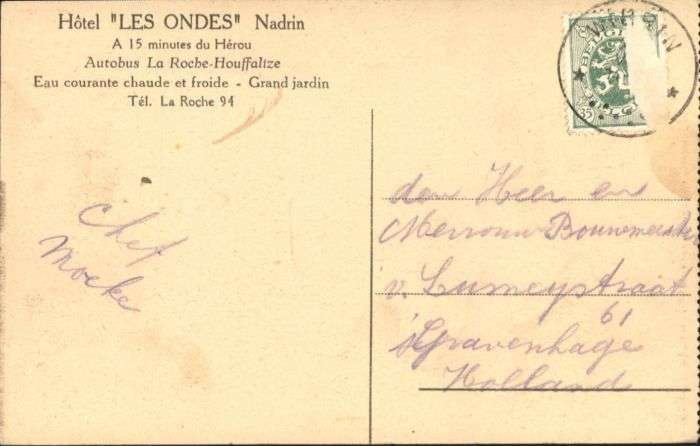 Hôtel "LES ONDES" Nadrin
A 15 minutes du Hérou
Autobus La Roche-Houffalize
Eau courante chaude et froide - Grand jardin
Tél. La Roche 94
NADRIN
BELGI
35
Chef
Moeke
den Heer en
Mevrouw Bouwmeester
v. Lumeystraat
61
s'Gravenhage
Holland